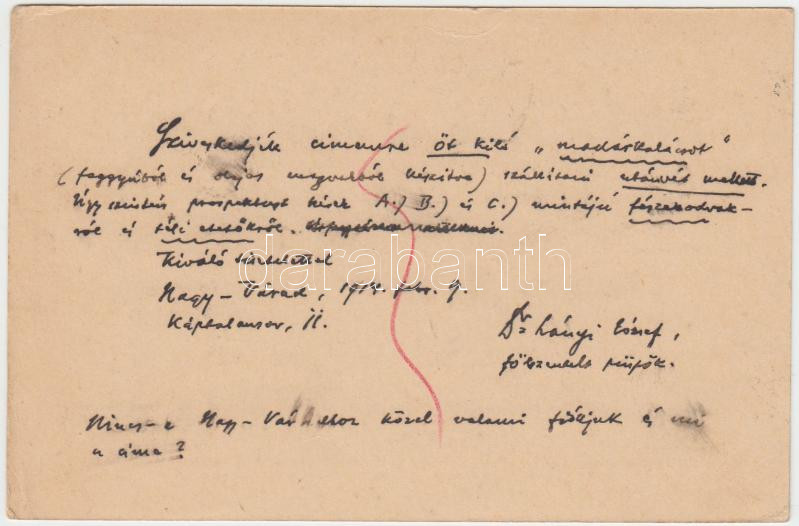 Sziveskedjék cimemre öt kiló „madárkalácsot"
(faggyúból és olajos magvakból készitve) szállitani utánvét mellett.
Úgyszintén prospektust kérek A.) B.) és C.) mintájú fészekodvak-
ról és téli etetőkről.
Kiváló tisztelettel
darabanth
Nagy-Várad, febr. 9.
Káptalansor, II.
Dr Lányi József,
fölszentelt püspök.
Nincs-e Nagy-Váradhoz közel valami fiókjuk és mi
a cime?